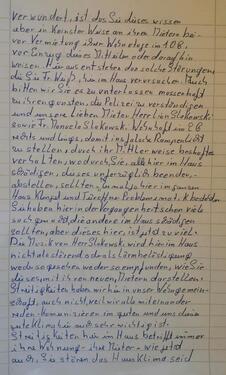 verwundert, ist das Sie dieses wissen
aber in keinster Weise an ihren Mietern bei
vor Vermietung ihrer Wohnetage in 108,
vor Einzug dieses Mitteilen oder darauf hin
weisen. Hieraus entstehen da solche Störungen
die Sie Fr. im Haus verursachen. Auch
bitten wir Sie es zu unterlassen massenhaft
zu ihren gunsten, die Polizei zu verständigen
und unsere lieben Mieter Herr Slokowski
sowie Fr. Manuela Slokowski, Wohnhaft im 2 OG
rechts und Jungs, damit ins falsche Rampenlicht
zu stellen, durch ihr Mittlerweise boshaftes
verhalten, wodurch Sie, alle hier im Haus
schädigen, dieses unverzüglich beenden,
abstellen, sollten, zumal ja hier im ganzen
Haus Klingel und Türöffner Problemematik bestehen
Sie haben hier in der vergangenheit schon viele
auch gemobt, die andere im Haus schädigen
sollten, aber dieses hier, ist jetzt zu viel.
Die Musik von Herr Slokowski wird hier im Haus
nicht als störend oder als Lärmbelästigung
weder angesehen weder so empfunden, wie Sie
dieses mit ihren neuen Mietern darstellen.
Streitigkeiten haben wir hier in unserer Wohngemein-
schaft, auch nicht, weil wir alle miteinander
reden - Komunizieren im guten und uns dieses
gute Klima hier auch sehr wichtig ist.
Streitigkeiten hier im Haus betrifft immer
ihre Wohnung - ihre Mieter - wie jetzt
auch, Sie stören das Haus Klima seid